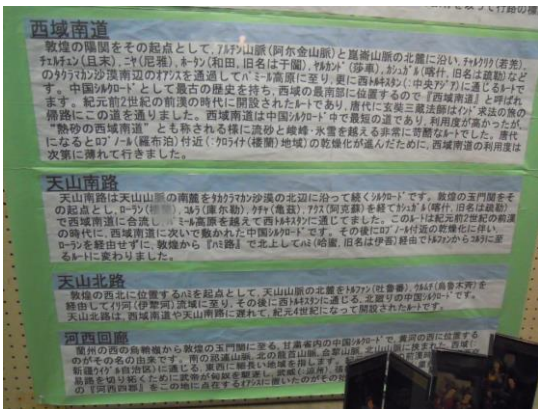 西域南道
敦煌の陽関をその起点として、アルチン山脈(阿尓金山脈)と崑崙山脈の北麓に沿い、チャルクリク(若羌)、
チェルチェン(且末)、ニヤ(尼雅)、ホータン(和田、旧名は于闐)、ヤルカンド(莎車)、カシュガル(喀什、旧名は疏勒)など
のタクラマカン沙漠南辺のオアシスを通過してパミール高原に至り、更に西トルキスタン(:中央アジア)に通じるルートで
す。中国シルクロードとして最古の歴史を持ち、西域の最南部に位置するので『西域南道』と呼ばれ
ます。紀元前2世紀の前漢の時代に開設されたルートであり、唐代に玄奘三蔵法師はインド求法の旅の
帰路にこの道を通りました。西域南道は中国シルクロード中で最短の道であり、利用度が高かったが、
"熱砂の西域南道"とも称される様に流砂と峻峰・氷雪を越える非常に苛酷なルートでした。唐代
になるとロプノール(羅布泊)付近(:クロライナ(楼蘭)地域)の乾燥化が進んだために、西域南道の利用は
次第に薄れて行きました。
天山南路
天山南路は天山山脈の南麓をタカラマカン沙漠の北辺に沿って続くシルクロードです。敦煌の玉門関をそ
の起点とし、ローラン(楼蘭)、コルラ(庫尓勒)、クチャ(亀茲)、アクス(阿克蘇)を経てカシュガル(喀什、旧名は疏勒)
で西域南道に合流し、パミール高原を越えて西トルキスタンに通じてました。このルートは紀元前2世紀の前漢
の時代に、西域南道に次いで敷かれた中国シルクロードです。その後にロプノール付近の乾燥化に伴い、
ローランを経由せずに、敦煌から『ハミ路』で北上してハミ(哈蜜、旧名は伊吾)経由でトルファンからコルラに至
るルートに変わりました。
天山北路
敦煌の西北に位置するハミを起点として、天山山脈の北麓をトルファン(吐魯番)、ウルムチ(烏魯木斉)を
経由してイリ河(伊犂河)流域に至り、その後に西トルキスタンに通じる、北廻りの中国シルクロードです。
天山北路は、西域南道や天山南路に遅れて、紀元4世紀になって開設されたルートです。
河西回廊
蘭州の西の烏鞘嶺から敦煌の玉門関に至る、甘粛省内の中国シルクロードで、黄河の西に位置する
のがその名の由来です。南の祁連山脈、北の龍首山脈、合黎山脈、北山山脈に挟まれた、西域(:
新疆ウイグル自治区)に通じる、東西に細長い地域を指します。
易路を切り拓くために武帝が匈奴を駆逐し、武威(:涼州)、
の『河西四郡』をこの地に点在するオアシスに置いたのがその